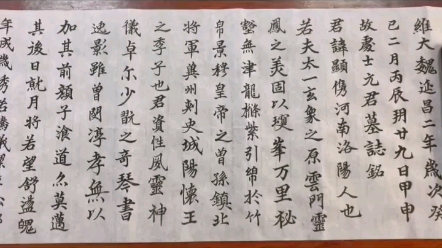 維大魏延昌二年歲次
巳二月丙辰朔廿九日甲申
故處士元君墓誌銘
君諱顯儁河南洛陽人也
若夫太一玄象之原雲門靈
鳳之美固以瓊峯万里秘
壑無津龍縧紫引綿於竹
帛景穆皇帝之曾孫鎮北
將軍冀州刺史城陽懷王
之季子也君資性夙靈神
儀卓尒少翫之奇琴書
逸影雖曾閔淳孝無以
加其前顏子湌道亦莫邁
其後日就月將若望舒盪魄
年成歲秀若